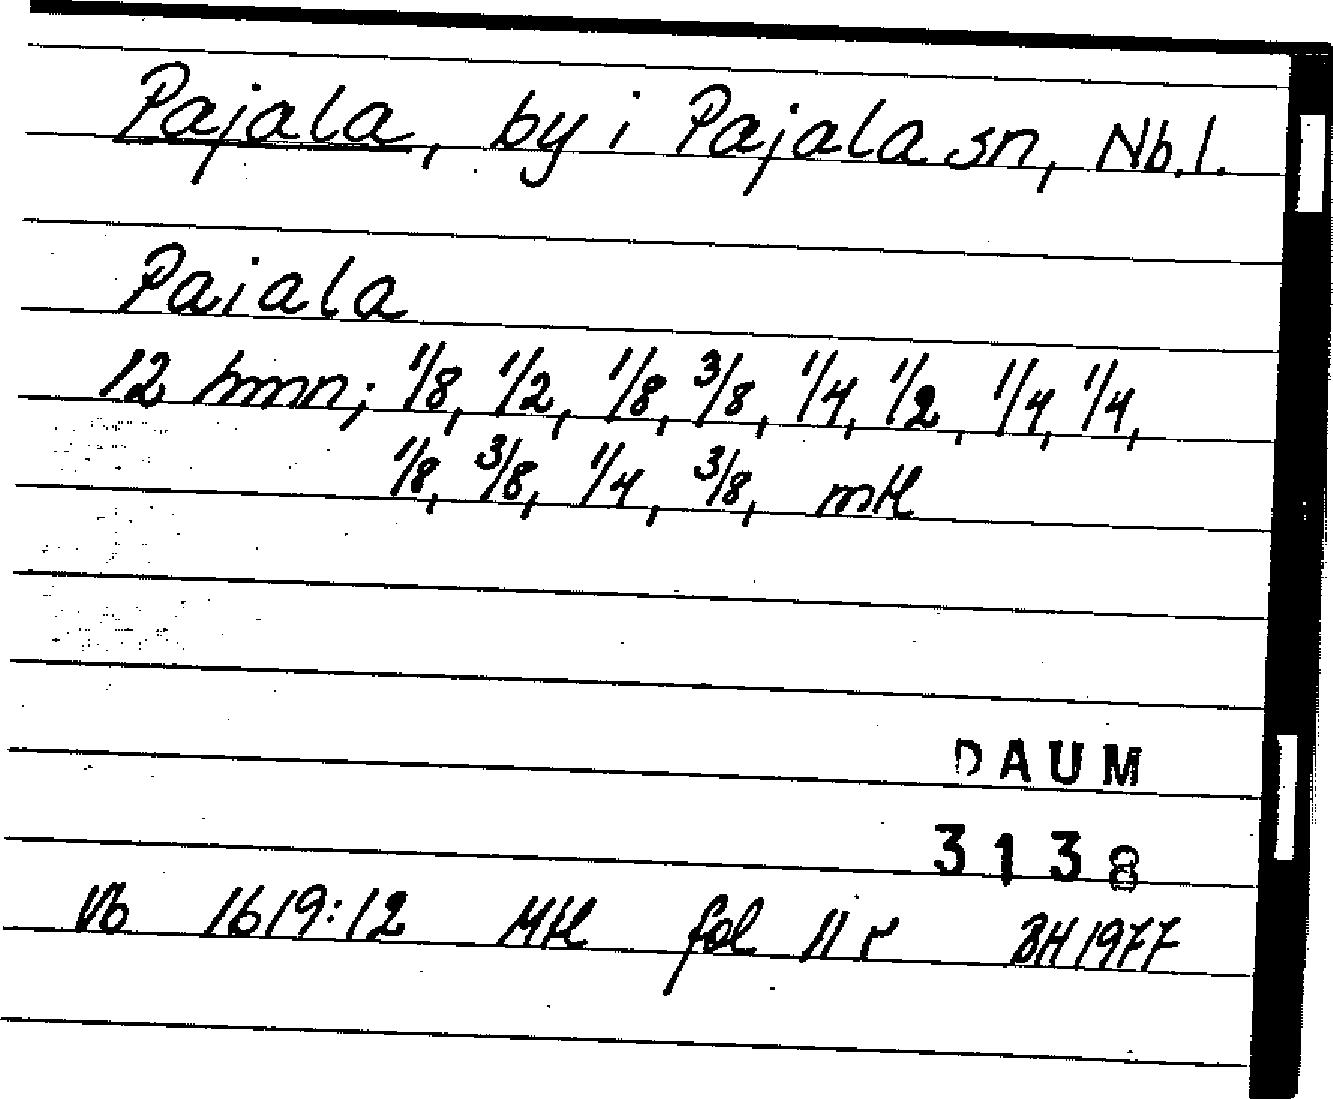 Pajala, by i Pajala sn, Nb.l.
Paiala
12 hmn; 1/8, 1/2, 1/8, 3/8, 1/4, 1/2, 1/4, 1/4,
1/8, 3/8, 1/4, 3/8, mtl
DAUM
3138
Vb 1619:12 Mtl fol 11 r BH 1977